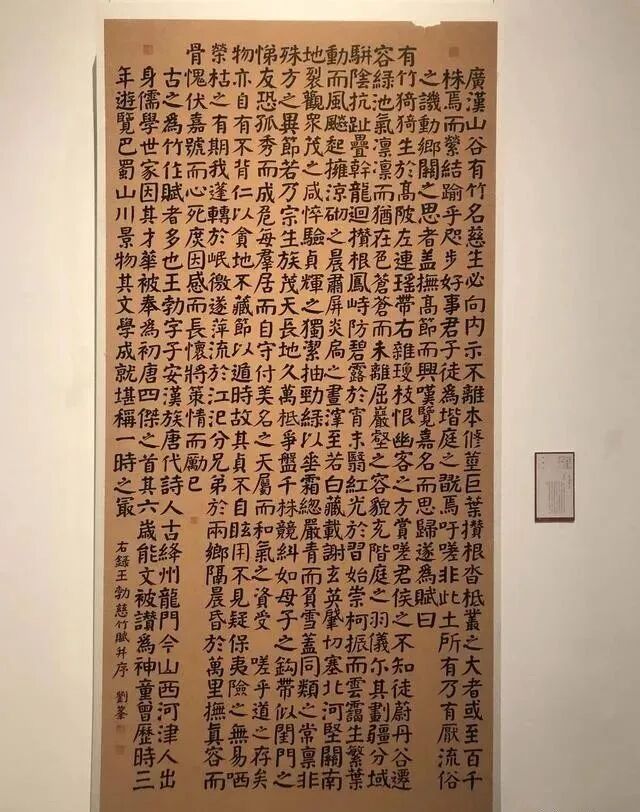 廣漢山谷有竹名慈生必向内示不離本修篁巨葉攢根沓柢叢之大者或至百千
株焉而縈結踰乎咫步好事君子徒為堦庭之翫焉吁嗟非此土所有乃有厭流俗
之譏動鄉關之思者盖撫髙節而興嘆覽嘉名而思歸遂為賦曰
有竹猗猗生於髙陂左連瑶帶右雜瓊枝恨幽客之方賞嗟君侯之不知徒蔚丹谷遷
容綠池氣凛凛而猶在色蒼蒼而未離屈巖壑之容貌充階庭之羽儀尓其劃疆分域
駢陰抗趾疊幹龍迴攢根鳳峙防碧露於宵末翳紅光於習始崇柯振而雲靄生繁葉
動而風飈起擁涼砌之晨肅屏炎扃之晝滓至若白藏載謝玄英肇切塞北河堅關南
地裂觀眾茂之咸悴驗貞輝之獨潔抽勁綠以垂霜總嚴青而負雪盖同類之常禀非
殊方之異節若乃宗生族茂天長地久萬柢爭盤千株競糾如母子之鈎帶似閨門之
悌友恐孤秀而成危每羣居而自守付美名之天屬而和氣之資受 嗟乎道之存矣
物亦自有不背仁以貪地不藏節以遁時故其貞不自眩用不見疑保夷險之無易哂
榮枯之有期我蓬轉於岷徼遂萍流於江汜分兄弟於兩鄉隔晨昏於萬里撫真容而
骨愧伏嘉號而心死庻因感而長懷將策情而厲已
古之為竹住賦者多也王勃字子安漢族唐代詩人古絳州龍門今山西河津人出
身儒學世家因其才華被奉為初唐四傑之首其六歲能文被讃為神童曾歷時三
年遊覽巴蜀山川景物其文學成就堪稱一時之最
右錄王勃慈竹賦并序 劉峯